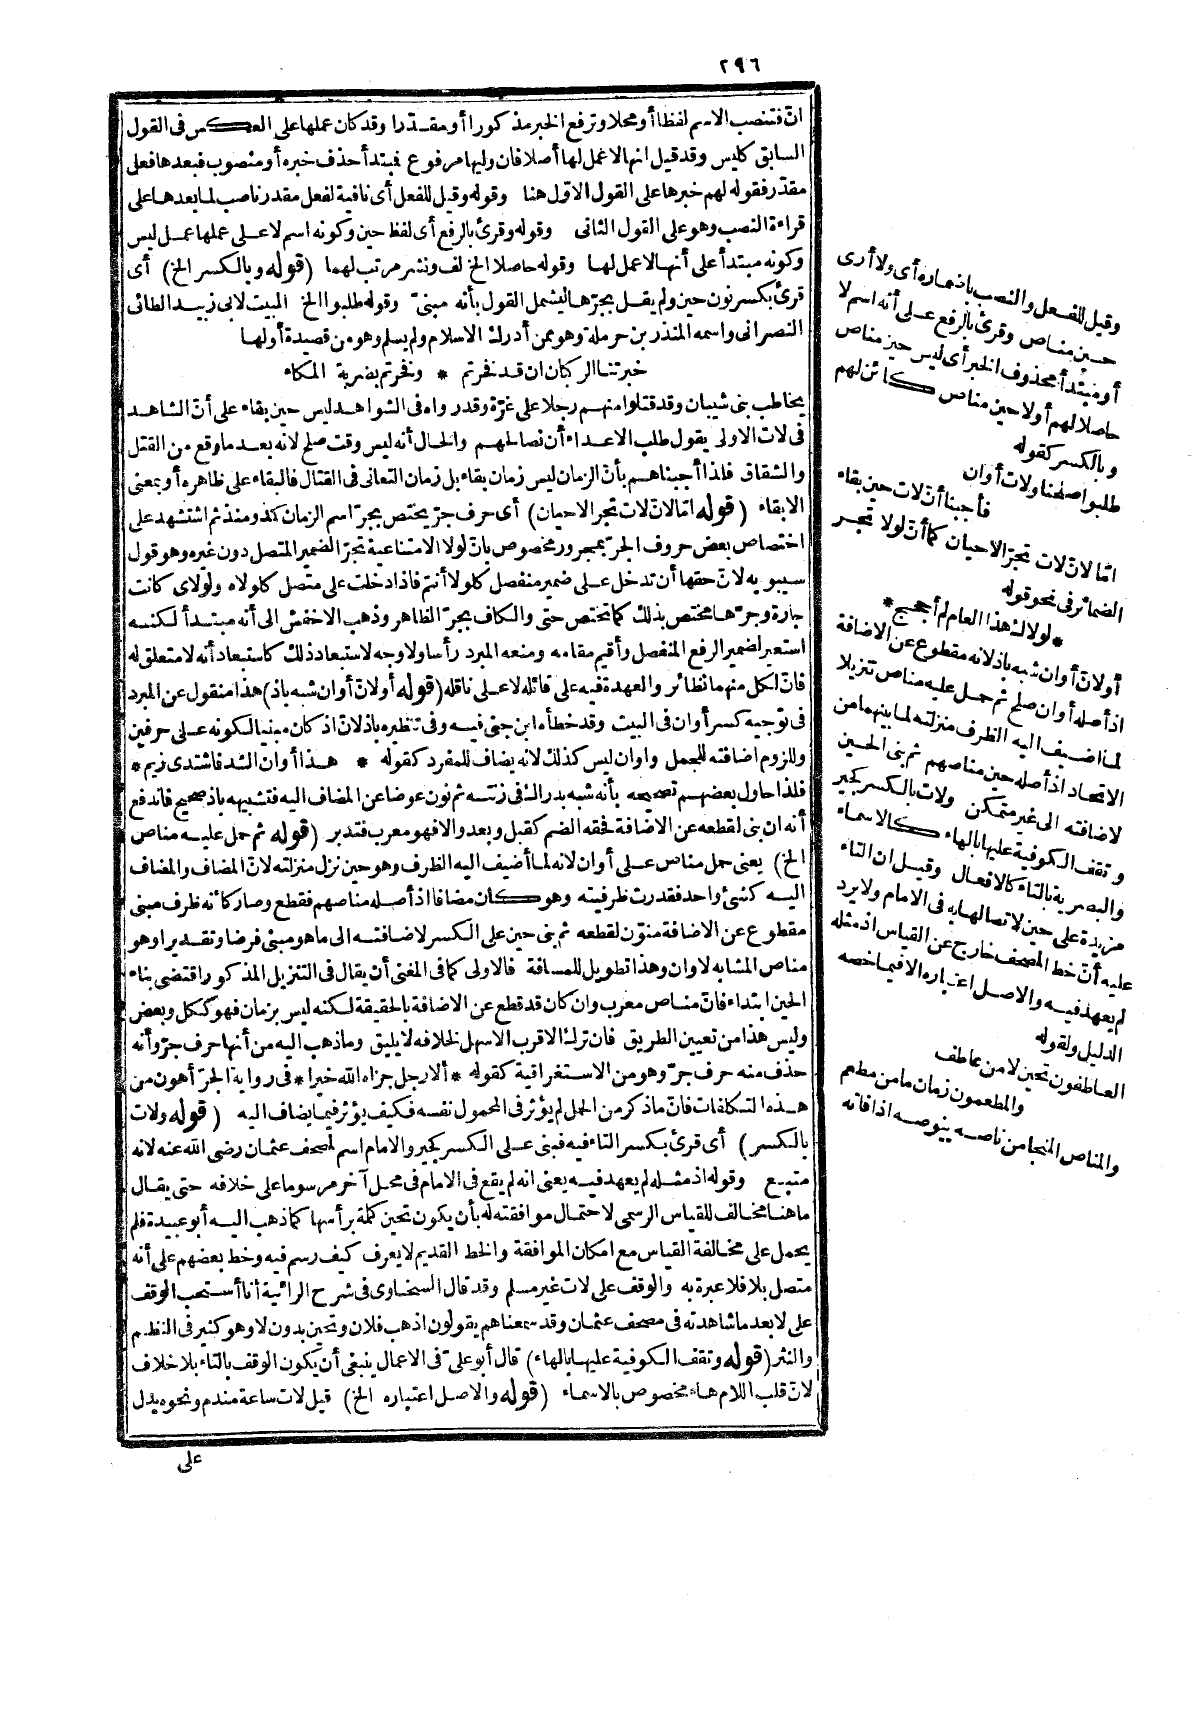 ٢٩٦
انّ فتنصب الاسم لفظا أو محلا وترفع الخبر مذكورا أو مقدّرا وقد كان عملها على العكس فى القول
السابق كليس وقد قيل انها لاعمل لها أصلا فان وليها مرفوع فبتدأ حذف خبره أو منصوب فبعدها فعل
مقدّر فقوله لهم خبرها على القول الاوّل هنا وقوله وقيل للفعل أى نافية لفعل مقدر ناصب لما بعدها على
قراءة النصب وهو على القول الثانى وقوله وقرئ بالرفع أى لفظ حين وكونه اسم لا على عملها عمل ليس
وكونه مبتدأ على أنها لاعمل لها وقوله حاصلا الخ لف ونشر مرتب لهما (قوله وبالكسر الخ) أى
قرئ بكسر نون حين ولم يقل بجرّها ليشمل القول بأنه مبنىّ وقوله طلبوا الخ البيت لابى زبيد الطائى
النصرانى واسمه المنذر بن حرملة وهو ممن أدرك الاسلام ولم يسلم وهو من قصيدة أولها
خبرتنا الركبان ان قد نفرتم * ونفرتم بضربة المكاء
يخاطب بنى شيبان وقد قتلوا منهم رجلا على غرّة وقد رواه فى الشواهد ليس حين بقاء على أنّ الشاهد
فى لات الاولى يقول طلب الاعداء أن نصالحهم والحال أنه ليس وقت صلح لانه بعد ما وقع من القتل
والشقاق فلذا أجبناهم بأنّ الزمان ليس زمان بقاء بل زمان التعانى فى القتال فالبقاء على ظاهره أو بمعنى
الابقاء (قوله امّا لانّ لات تجر الاحيان) أى حرف جرّ يختص بجرّ اسم الزمان كمذ ومنذ ثم اشتشهد على
اختصاص بعض حروف الجرّ بمجرور مخصوص بانّ لولا الامتناعية تجرّ الضمير المتصل دون غيره وهو قول
سيبويه لانّ حقها أن تدخل على ضمير منفصل كلولا أنتم فاذا دخلت على متصل كلولاه ولولاى كانت
جارة وجرّها مختص بذلك كما تختص حتى والكاف بجرّ الظاهر وذهب الاخفش الى أنه مبتدأ لكنه
استعير لضمير الرفع المنفصل وأقيم مقامه ومنعه المبرد رأسا ولا وجه لاستبعاد ذلك كاستبعاد أنه لا متعلق له
فانّ لكل منهما نظائر والعهدة فيه على قائله لا على ناقله (قوله أولانّ أوان شبه باذ) هذا منقول عن المبرد
فى توجيه كسر أوان فى البيت وقد خطأه ابن جنى فيه وفى تنظيره باذ لانّ اذ كان مبنيا لكونه على حرفين
وللزوم اضافته للجمل واوان ليس كذلك لانه يضاف للمفرد كقوله * هذا أوان الشد فاشتدى زيم *
فلذا حاول بعضهم تصحيحه بأنه شبه بدراك فى زنته ثم نون عوضا عن المضاف اليه فتشبيهه باذ صحيح فاندفع
أنه ان بنى لقطعه عن الاضافة فحقه الضم كقبل وبعد والا فهو معرب فتدبر (قوله ثم حمل عليه مناص
الخ) يعنى حمل مناص على أوان لانه لما أضيف اليه الظرف وهو حين نزل منزلته لانّ المضاف والمضاف
اليه كشئ واحد فقدرت ظرفيته وهو كان مضافا اذ أصله مناصهم فقطع وصار كأنه ظرف مبنى
مقطوع عن الاضافة منوّن لقطعه ثم بنى حين على الكسر لاضافته الى ما هو مبنى فرضا وتقديرا وهو
مناص المشابه لاوان وهذا تطويل للمسافة فالاولى كما فى المغنى أن يقال فى التنزيل المذكور اقتضى بناء
الحين ابتداء فانّ مناص معرب وان كان قد قطع عن الاضافة بالحقيقة لكنه ليس بزمان فهو ككل وبعض
وليس هذا من تعيين الطريق فانّ ترك الاقرب الاسهل لخلافه لا يليق وما ذهب اليه من أنها حرف جرّ وأنه
حذف منه حرف جرّ وهو من الاستغراقية كقوله * ألا رجل جزاه الله خيرا * فى رواية الجرّ أهون من
هذه التكلفات فانّ ما ذكر من الحمل لم يؤثر فى المحمول نفسه فكيف يؤثر فيما يضاف اليه (قوله ولات
بالكسر) أى قرئ بكسر التاء فيه فبنى على الكسر كجير والامام اسم لمصحف عثمان رضى الله عنه لانه
متبع وقوله اذ مثله لم يعهد فيه يعنى انه لم يقع فى الامام فى محل آخر مرسوما على خلافه حتى يقال
ما هنا مخالف للقياس الرسمى لاحتمال موافقته له بأن يكون تحين كلمة برأسها كما ذهب اليه أبو عبيدة فلم
يحمل على مخالفة القياس مع امكان الموافقة والخط القديم لا يعرف كيف رسم فيه وخط بعضهم على أنه
متصل بلا فلا عبرة به والوقف على لات غير مسلم وقد قال السخاوى فى شرح الرائية أنا أستحب الوقف
على لا بعد ما شاهدته فى مصحف عثمان وقد سمعناهم يقولون اذهب فلان وتحين بدون لا وهو كثير فى النظم
والنثر (قوله وتقف الكوفية عليها بالهاء) قال أبو على فى الاعمال ينبغى أن يكون الوقف بالتاء بلا خلاف
لانّ قلب اللام هاء مخصوص بالاسماء (قوله والاصل اعتباره الخ) قيل لات ساعة مندم ونحوه يدل
على
وقيل للفعل والنصب باضماره أى ولا أرى
حين مناص وقرئ بالرفع على أنه اسم لا
أو مبتدأ محذوف الخبر أى ليس حين مناص
حاصلا لهم أولا حين مناص كائن لهم
وبالكسر كقوله
طلبوا صلحنا ولات أوان
فأجبنا أن لات حين بقاء
امّا لانّ لات تجرّ الاحيان كما أنّ لولا تجر
الضمائر فى نحو قوله
* لولاك هذا العام لم أحجج *
أولانّ أوان شبه باذ لانه مقطوع عن الاضافة
اذ أصله أوان صلح ثم حمل عليه مناص تنزيلا
لما اضيف اليه الظرف منزلته لما بينهما من
الاتحاد اذ أصله حين مناصهم ثم بنى الحين
لاضافته الى غير متمكن ولات بالكسر كجير
وتقف الكوفية عليها بالهاء كالاسماء
والبصرية بالتاء كالافعال وقيل ان التاء
مزيدة على حين لاتصالها به فى الامام ولا يرد
عليه أنّ خط المصحف خارج عن القياس اذ مثله
لم يعهد فيه والاصل اعتباره الا فيما خصه
الدليل ولقوله
العاطفون تحين لا من عاطف
والمطعمون زمان ما من مطعم
والمناص المنجا من ناصه ينوصه اذا فاته